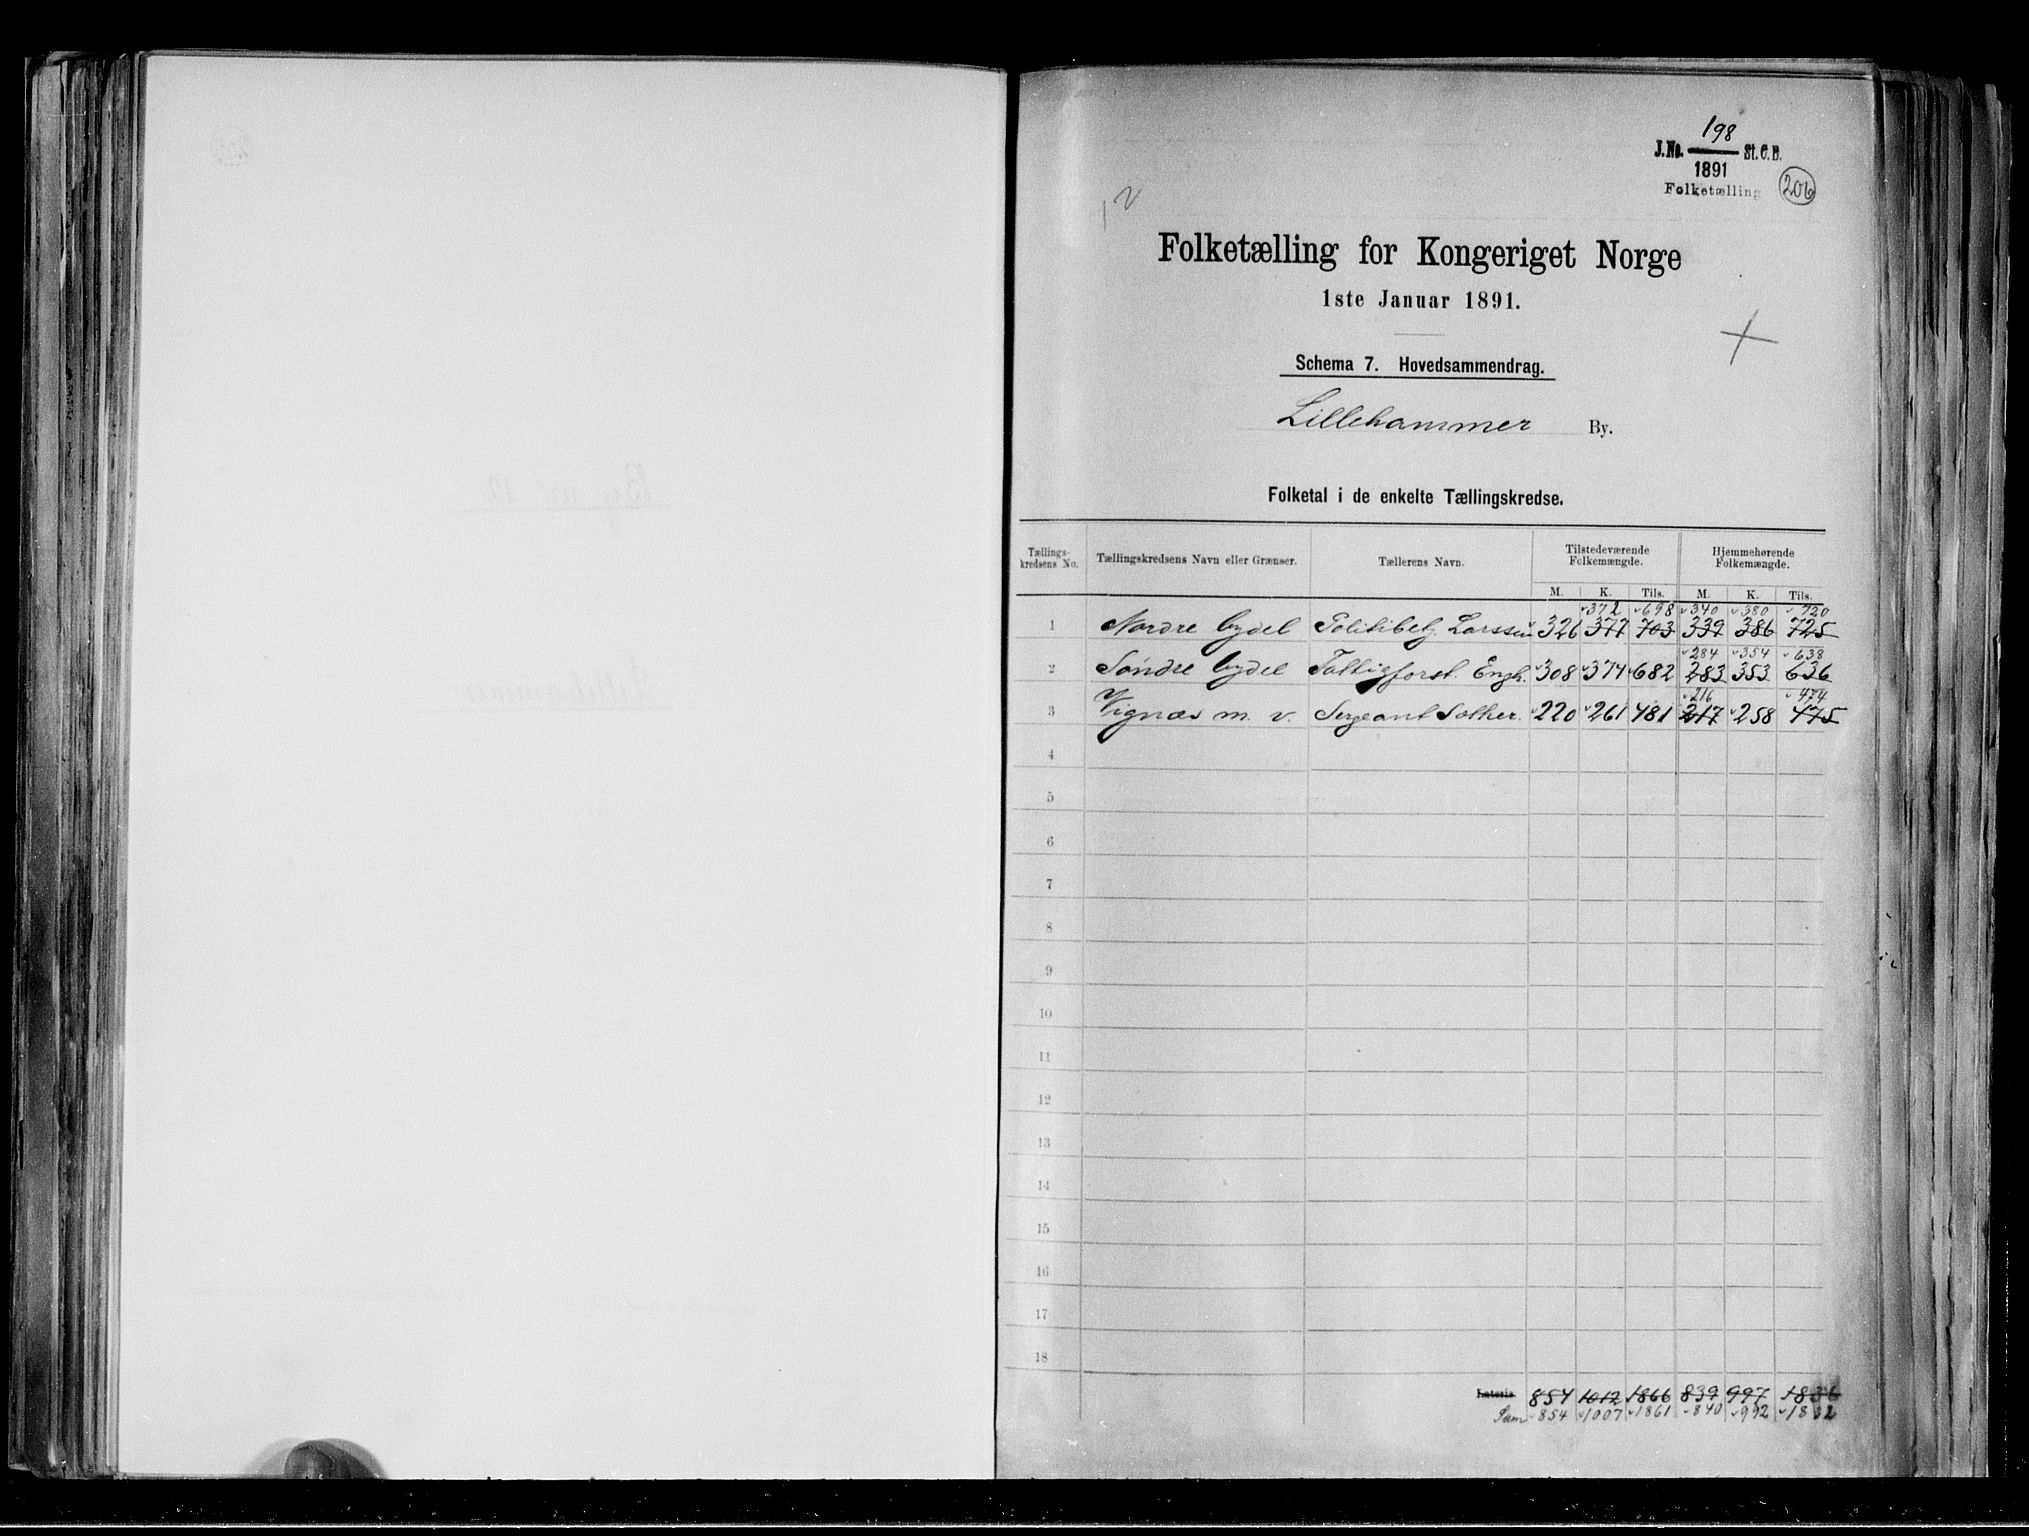 198
J.No. St.C.B.
1891
Folketælling 206
Folketælling for Kongeriget Norge
1ste Januar 1891.
Schema 7. Hovedsammendrag.
Lillehammer By.
Folketal i de enkelte Tællingskredse.
Tællings-kredsens No. Tællingskredsens Navn eller Grænser. Tællerens Navn. Tilstedeværende Folkemængde. Hjemmehørende Folkemængde.
M. K. Tils. M. K. Tils.
372 698 340 380 720
1 Nordre bydel Politibetj. Larssen 326 377 703 339 386 725
284 354 638
2 Søndre bydel Fattigforst. Engh. 308 374 682 283 353 636
216 474
3 Vignæs m. v. Sergeant Solher. 220 261 481 217 258 475
4
5
6
7
8
9
10
11
12
13
14
15
16
17
18
Lateris 854 1012 1866 839 997 1836
Sum 854 1007 1861 840 992 1832